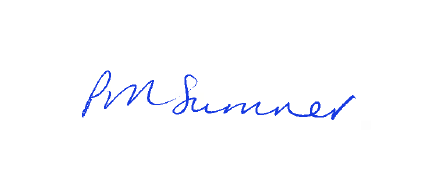 PM Sumner